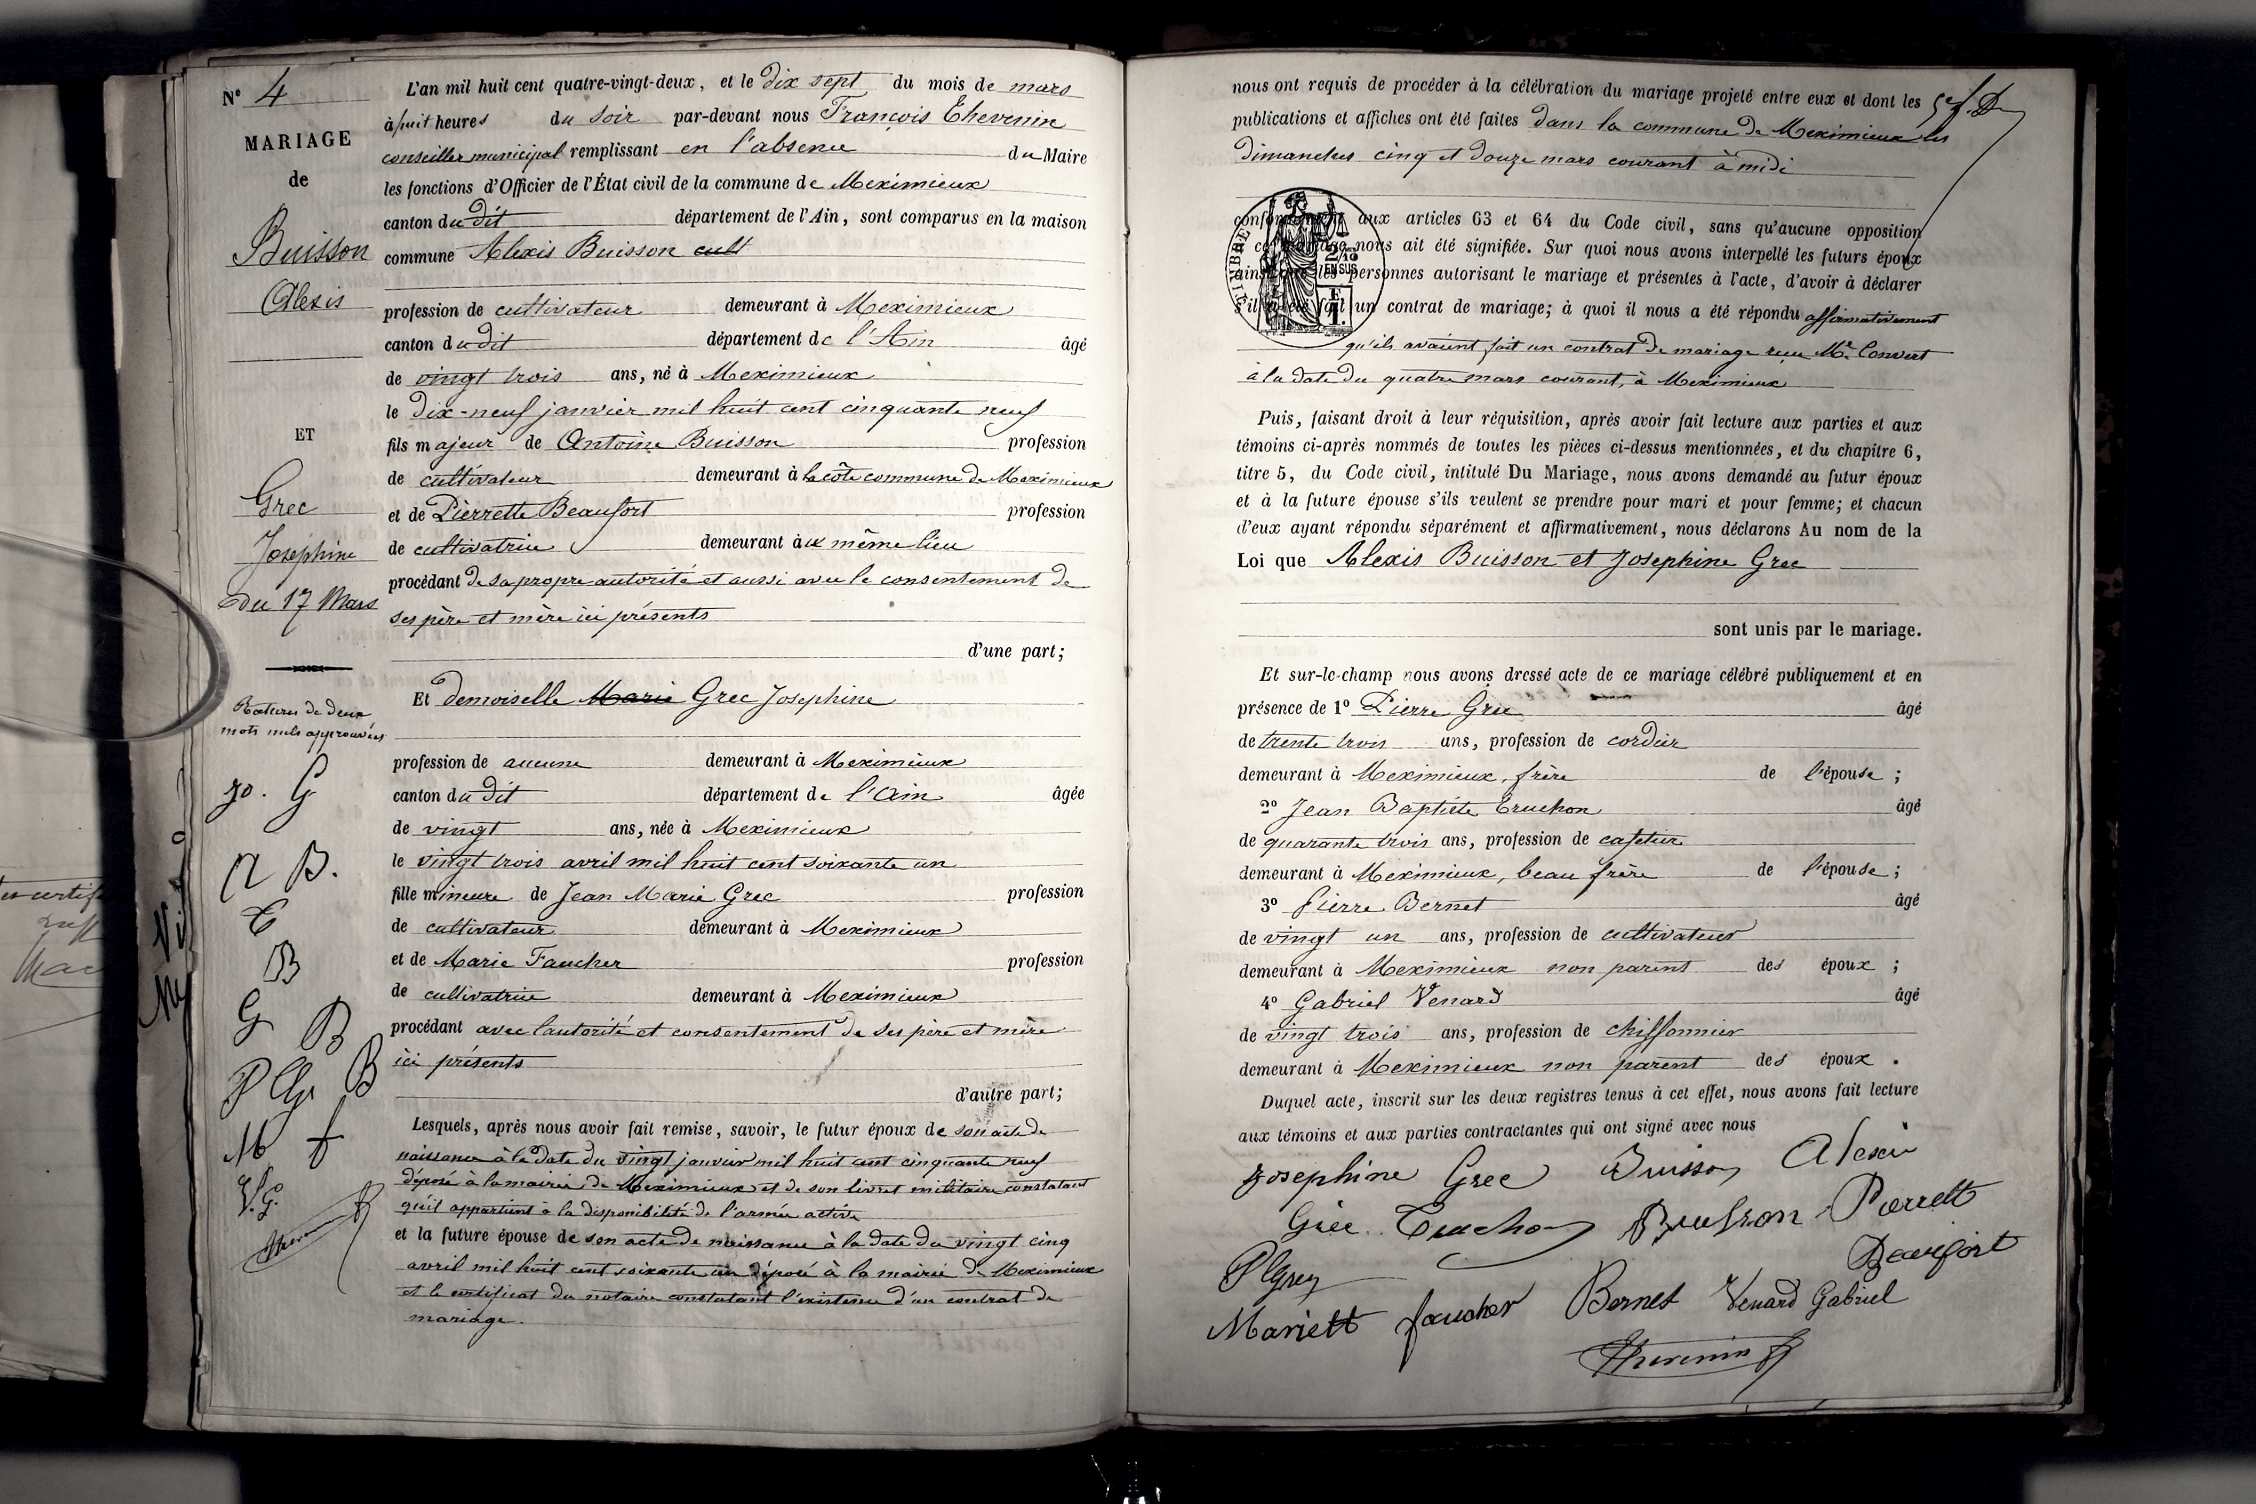 N° 4
MARIAGE
de
Buisson
Alexis
ET
Grec
Josephine
du 17 Mars
Ratures de deux
mots nuls approuvées
jo. G
A B.
T
B
G B
P Gr B
M f
V. G.
Thevenin
L'an mil huit cent quatre-vingt-deux, et le dix sept du mois de mars
à huit heures du soir par-devant nous François Thevenin
conseiller municipal remplissant en l'absence du Maire
les fonctions d'Officier de l'État civil de la commune de Meximieux
canton du dit département de l'Ain, sont comparus en la maison
commune Alexis Buisson cult
profession de cultivateur demeurant à Meximieux
canton du dit département de l'Ain âgé
de vingt trois ans, né à Meximieux
le dix-neuf janvier mil huit cent cinquante neuf
fils majeur de Antoine Buisson profession
de cultivateur demeurant à la côte commune de Meximieux
et de Pierrette Beaufort profession
de cultivatrice demeurant à u même lieu
procédant de sa propre autorité et aussi avec le consentement de
ses père et mère ici présents
d'une part;
Et demoiselle Marie Grec Josephine
profession de aucune demeurant à Meximieux
canton du dit département de l'Ain âgée
de vingt ans, née à Meximieux
le vingt trois avril mil huit cent soixante un
fille mineure de Jean Marie Grec profession
de cultivateur demeurant à Meximieux
et de Marie Faucher profession
de cultivatrice demeurant à Meximieux
procédant avec l'autorité et consentement de ses père et mère
ici présents
d'autre part;
Lesquels, après nous avoir fait remise, savoir, le futur époux de son acte de
naissance à la date du vingt janvier mil huit cent cinquante neuf
déposé à la mairie de Meximieux et de son livret militaire constatant
qu'il appartient à la disponibilité de l'armée active
et la future épouse de son acte de naissance à la date du vingt cinq
avril mil huit cent soixante un déposé à la mairie de Meximieux
et le certificat du notaire constatant l'existence d'un contrat de
mariage.
nous ont requis de procéder à la célébration du mariage projeté entre eux et dont les
publications et affiches ont été faites dans la commune de Meximieux les
dimanches cinq et douze mars courant à midi
conformément aux articles 63 et 64 du Code civil, sans qu'aucune opposition
à ce mariage nous ait été signifiée. Sur quoi nous avons interpellé les futurs époux
ainsi que les personnes autorisant le mariage et présentes à l'acte, d'avoir à déclarer
s'il a été fait un contrat de mariage; à quoi il nous a été répondu affirmativement
qu'ils avaient fait un contrat de mariage reçu Me Convert
à la date du quatre mars courant, à Meximieux
TIMBRE
2/10
EN SUS
Puis, faisant droit à leur réquisition, après avoir fait lecture aux parties et aux
témoins ci-après nommés de toutes les pièces ci-dessus mentionnées, et du chapitre 6,
titre 5, du Code civil, intitulé Du Mariage, nous avons demandé au futur époux
et à la future épouse s'ils veulent se prendre pour mari et pour femme; et chacun
d'eux ayant répondu séparément et affirmativement, nous déclarons Au nom de la
Loi que Alexis Buisson et Josephine Grec
sont unis par le mariage.
Et sur-le-champ nous avons dressé acte de ce mariage célébré publiquement et en
présence de 1° Pierre Grec âgé
de trente trois ans, profession de cordier
demeurant à Meximieux, frère de l'épouse;
2° Jean Baptiste Truchon âgé
de quarante trois ans, profession de cafetier
demeurant à Meximieux, beau frère de l'épouse;
3° Pierre Bernet âgé
de vingt un ans, profession de cultivateur
demeurant à Meximieux non parent des époux;
4° Gabriel Venard âgé
de vingt trois ans, profession de chiffonnier
demeurant à Meximieux non parent des époux.
Duquel acte, inscrit sur les deux registres tenus à cet effet, nous avons fait lecture
aux témoins et aux parties contractantes qui ont signé avec nous
Josephine Grec Buisson Alexis
Grec Truchon Buisson Pierrett
Beaufort
P Grec
Mariett faucher Bernet Venard Gabriel
Thevenin